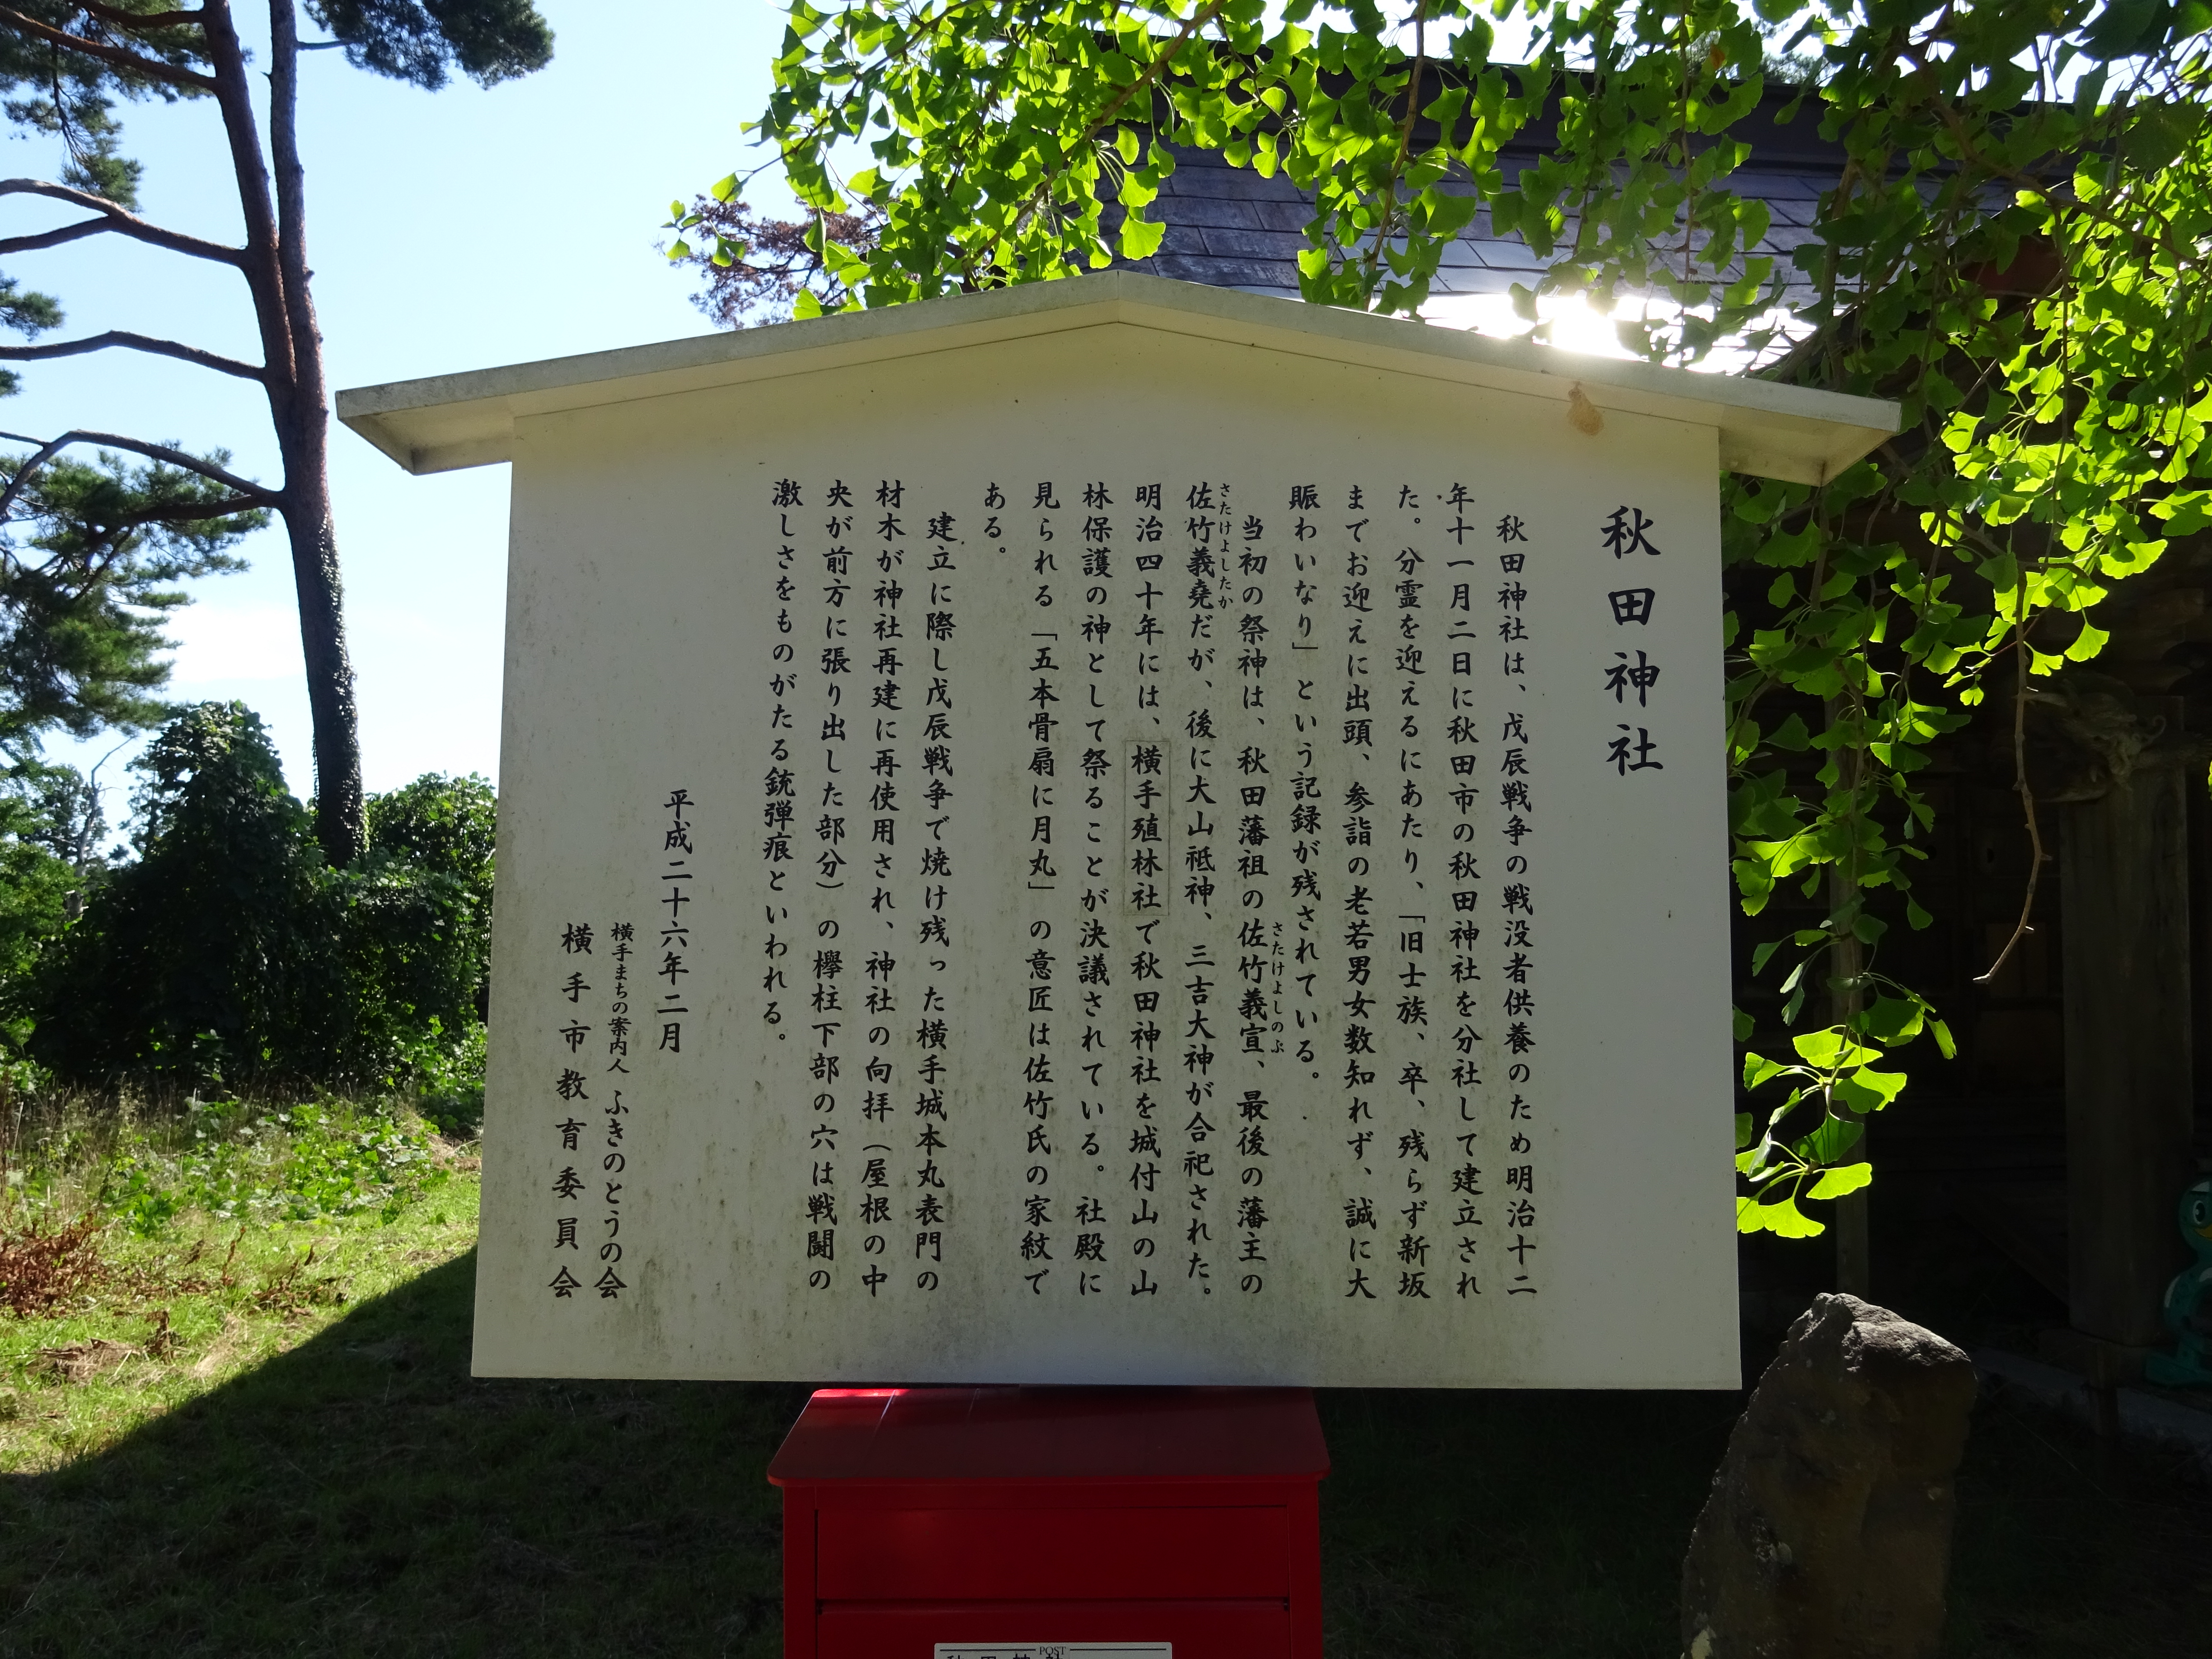 秋田神社
秋田神社は、戊辰戦争の戦没者供養のため明治十二
年十一月二日に秋田市の秋田神社を分社して建立され
た。分霊を迎えるにあたり、「旧士族、卒、残らず新坂
までお迎えに出頭、参詣の老若男女数知れず、誠に大
賑わいなり」という記録が残されている。
当初の祭神は、秋田藩祖の佐竹義宣、最後の藩主の
さたけよしのぶ
佐竹義堯だが、後に大山祗神、三吉大神が合祀された。
さたけよしたか
明治四十年には、横手殖林社で秋田神社を城付山の山
林保護の神として祭ることが決議されている。社殿に
見られる「五本骨扇に月丸」の意匠は佐竹氏の家紋で
ある。
建立に際し戊辰戦争で焼け残った横手城本丸表門の
材木が神社再建に再使用され、神社の向拝（屋根の中
央が前方に張り出した部分）の欅柱下部の穴は戦闘の
激しさをものがたる銃弾痕といわれる。
平成二十六年二月
横手まちの案内人 ふきのとうの会
横手市教育委員会
POST